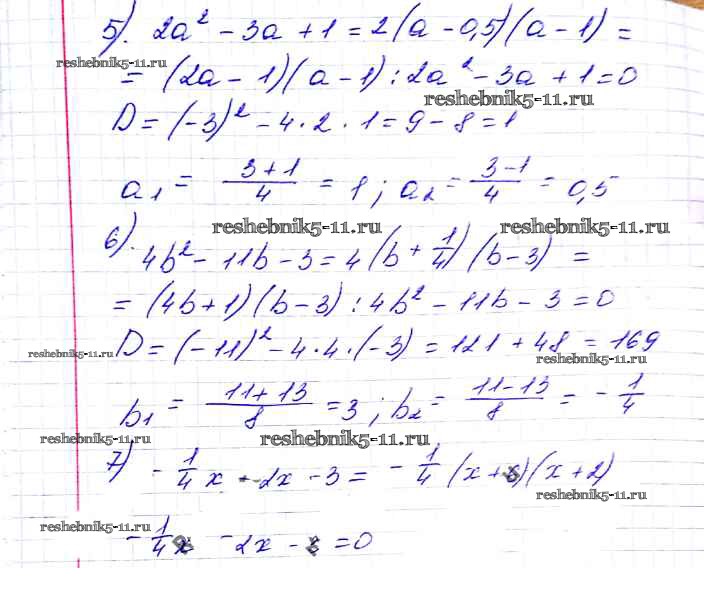 5). 2a² - 3a + 1 = 2(a - 0,5)(a - 1) =
reshebnik5-11.ru
= (2a - 1)(a - 1) : 2a² - 3a + 1 = 0
reshebnik5-11.ru
D = (-3)² - 4·2·1 = 9 - 8 = 1
a₁ = (3+1)/4 = 1; a₂ = (3-1)/4 = 0,5
reshebnik5-11.ru reshebnik5-11.ru
6). 4b² - 11b - 3 = 4(b + 1/4)(b - 3) =
= (4b+1)(b - 3) : 4b² - 11b - 3 = 0
reshebnik5-11.ru D = (-11)² - 4·4·(-3) = 121 + 48 = 169
reshebnik5-11.ru
b₁ = (11+13)/8 = 3; b₂ = (11-13)/8 = -1/4
reshebnik5-11.ru reshebnik5-11.ru
7) -1/4 x - 2x - 3 = -1/4 (x + )(x + 2)
reshebnik5-11.ru
reshebnik5-11.ru
-1/4 - 2x - = 0